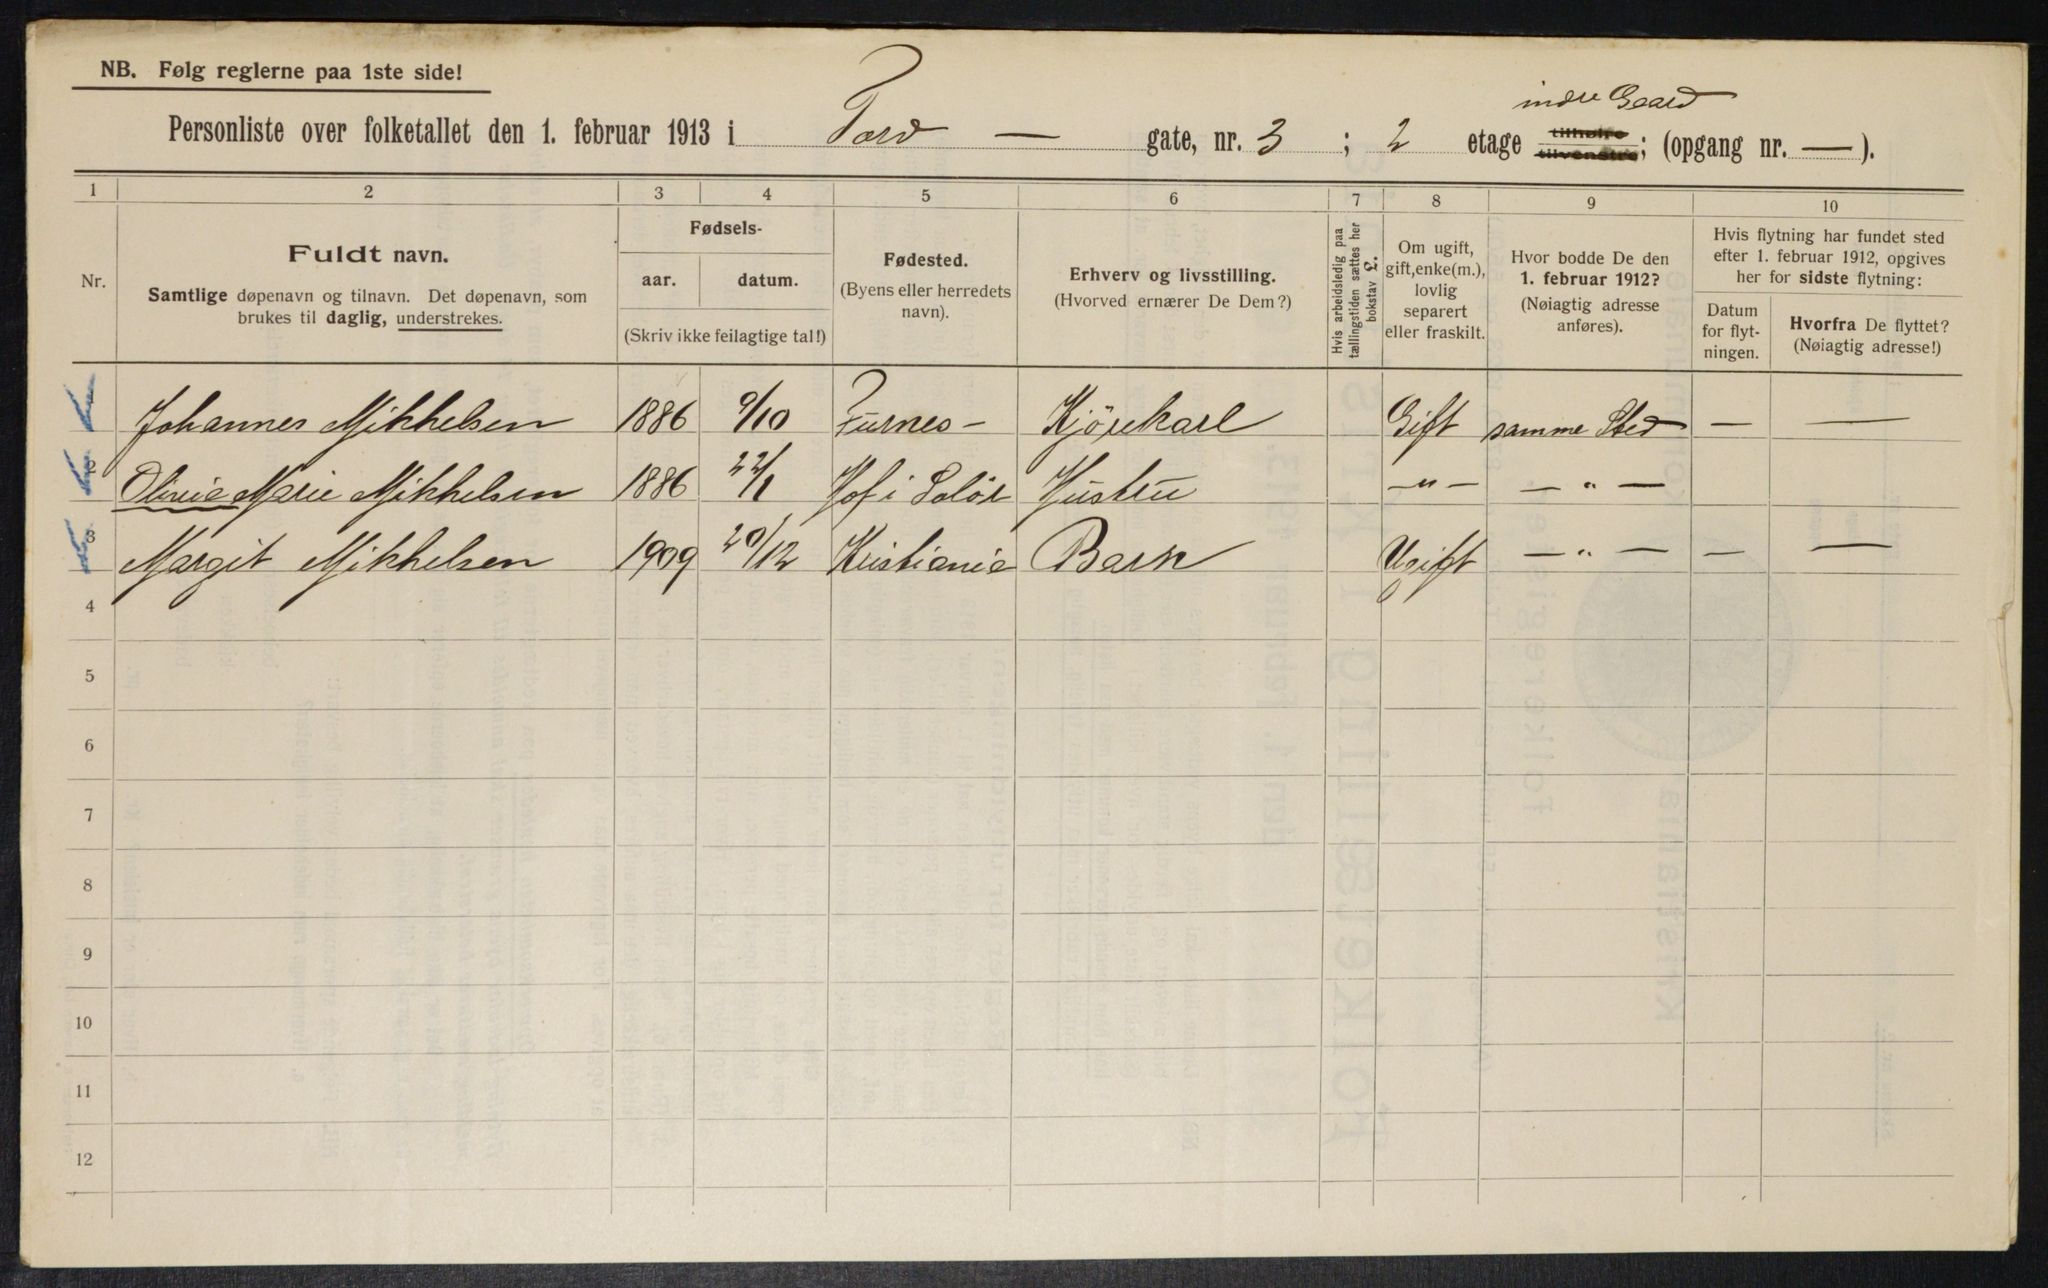 NB. Følg reglerne paa 1ste side!
indre Gaard
Personliste over folketallet den 1. februar 1913 i Torv — gate, nr. 3 ; 2 etage tilhøire tilvenstre; (opgang nr. — ).
1 2 3 4 5 6 7 8 9 10
Nr.
Fuldt navn.
Samtlige døpenavn og tilnavn. Det døpenavn, som
brukes til daglig, understrekes.
Fødsels-
aar. datum.
(Skriv ikke feilagtige tal!)
Fødested.
(Byens eller herredets
navn).
Erhverv og livsstilling.
(Hvorved ernærer De Dem?)
Hvis arbeidsledig paa
tællingstiden sættes her
bokstav L.
Om ugift,
gift, enke(m.),
lovlig
separert
eller fraskilt.
Hvor bodde De den
1. februar 1912?
(Nøiagtig adresse
anføres).
Hvis flytning har fundet sted
efter 1. februar 1912, opgives
her for sidste flytning:
Datum
for flyt-
ningen.
Hvorfra De flyttet?
(Nøiagtig adresse!)
Johannes Mikkelsen 1886 9/10 Furnes – Kjörekarl Gift samme Sted — —
2 Olivia Marie Mikkelsen 1886 22/1 Hof i Solör Hustru — " — — " —
3 Margit Mikkelsen 1909 20/12 Kristiania Barn Ugift — " — — —
4
5
6
7
8
9
10
11
12